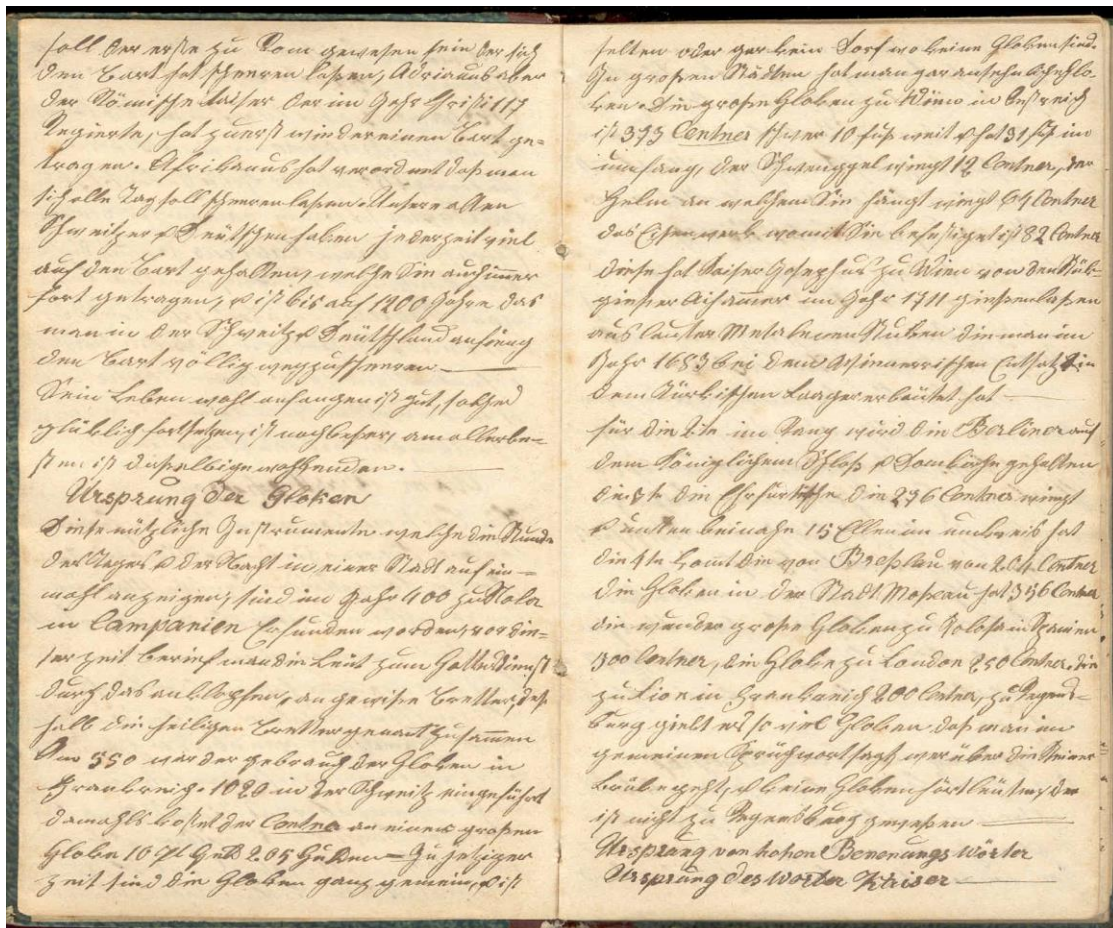 soll der erste zu Rom gewesen sein der sich
den Bart hat scheeren laßen, Adrianus aber
der Römische Kaiser der im Jahr Christi 117
Regierte, hat zuerst wieder einen Bart ge=
tragen. Afrikanus hat verordnet daß man
sich alle Tag soll scheeren laßen. Unsere alten
Schweitzer & Deütschen haben jederzeit viel
auf den Bart gehalten, welche Sie auch immer
fort getragen, & ist bis auf 1200 Jahre das
man in der Schweitz & Deütschland anfieng
den Bart völlig wegzuscheeren
Sein Leben wohl anfangen ist gut, solches
glüklich fortsetzen, ist noch beßer, am allerbe=
sten ist dasselbige wohl enden.
Ursprung der Gloken
Diese nützliche Instrumente welche die Stunde
des Tages & der Nacht in einer Stadt auf ein=
mahl anzeigen, sind im Jahr 400 zu Nola
in Campanien Erfunden worden, vor die=
ser Zeit berief man die Leüt zum Gottesdienst
durch das anklopfen, an gewiße Bretter, deß
halb die heiligen Bretter genant zusammen
Ano 550 war der gebrauch der Gloken in
Frankreich. 1020 in der Schweitz eingeführt
damahls kostet der Centner an einer großen
Gloke 10 Geld 205 Gulden = Zu jetziger
Zeit sind die Gloken ganz gemein, & ist
selten oder gar kein Dorf wo keine Gloken sind.
In großen Städten hat man gar ansehnliche Glo=
ken. Die große Gloken zu Wien in Östreich
ist 373 Centner schwer 10 fuß weit & hat 31 fuß im
umfang, der Schwenggel wiegt 12 Centner, der
Helm an welchem Sie hängt wiegt 64 Centner
das Eisenwerk womit Sie befestiget ist 82 Centner
diese hat Kaiser Josephus zu Wien von den Stük=
gießer im Jahr 1711 gießen laßen
aus lauter Metalenen Stuken die man im
Jahr 1683 bei dem Wienerischen Entsatz in
dem Türkischen Laager erbeütet hat
für die 2te im Rang wird die Berliner auf
dem Königlichem Schloß & Domkirche gehalten
die 3te die Ehrfurtische die 276 Centner wiegt
& unten beinahe 15 Ellen im umkreis hat
die 4te komt die von Breßlau von 204 Centner
die Gloken in der Stadt Moscau hat 356 Centner
die wunder große Gloken zu Tolosa in Spanien
300 Centner, die Gloke zu London 250 Centner. die
zu Lion in Frankreich 200 Centner, zu Regens=
burg giebt es so viel Gloken daß man im
gemeinen Sprüchwort sagt wer über die Steiner
Brüke geht, & keine Gloken hört leüten, der
ist nicht zu Regensburg gewesen
Ursprung von hohen Benenungs Wörter
Ursprung des Wortes Kaiser